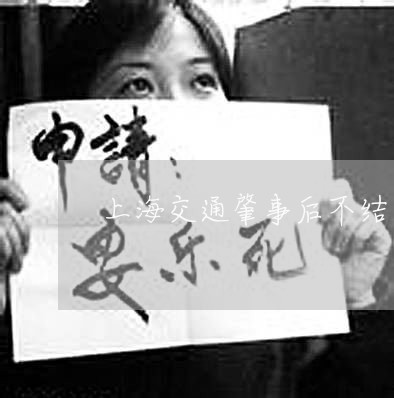 申請：
上海交通肇事后不结
安乐死